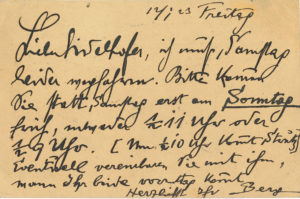 12/I 23 Freitag
ich muß Samstag
leider wegfahren. Bitte kommen
Sie statt Samstag erst am Sonntag
früh, entweder ½ 11 Uhr oder
Uhr. [Um ½10 Uhr kommt
Eventuell vereinbaren Sie mit ihm,
wann Ihr beide vormittag kommt.
Herzlichst Ihr Berg